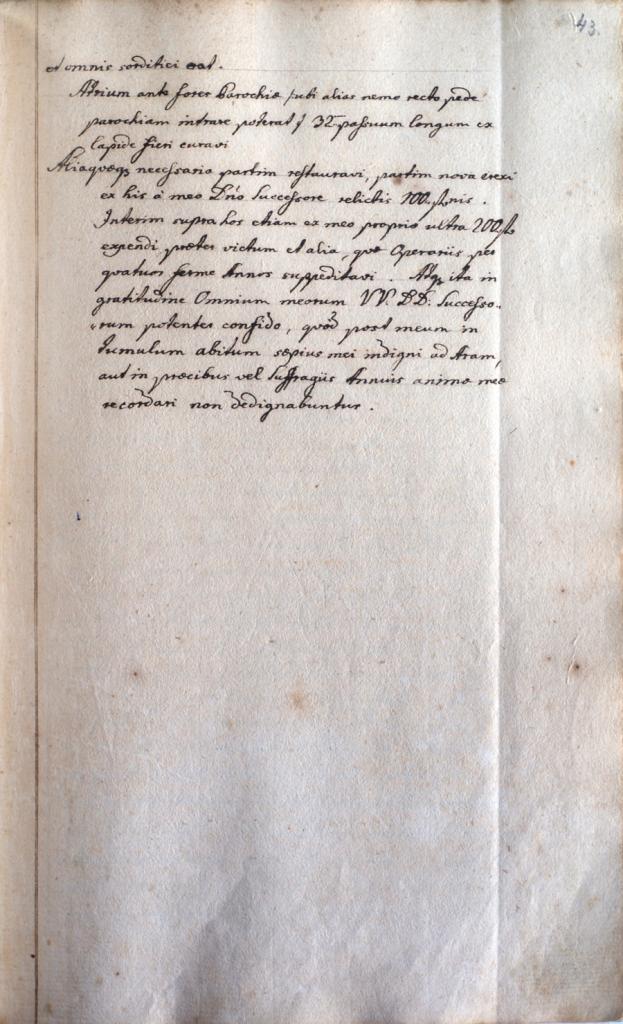 43.
et omnis sorditiei erat.
Atrium ante fores Parochiæ /ubi alias nemo recto pede
parochiam intrare poterat/ 32 passuum longum ex
lapide fieri curavi
Aliaqueqз necessaria partim restauravi, partim nova erexi
ex his à meo Dno Successore relictis 100. fl.
Interim supra hos etiam ex meo proprio ultra 200 fl
expendi præter victum et alia, quæ Operariis per
quatuor ferme Annos suppeditavi. Atqз ita in
gratitudine Omnium meorum VV. DD. Successo-
rum potenter confido, quod post meum in
Tumulum abitum sæpius mei indigni ad Aram,
aut in precibus vel Suffragiis Annuis animæ meæ
recordari non dedignabuntur.